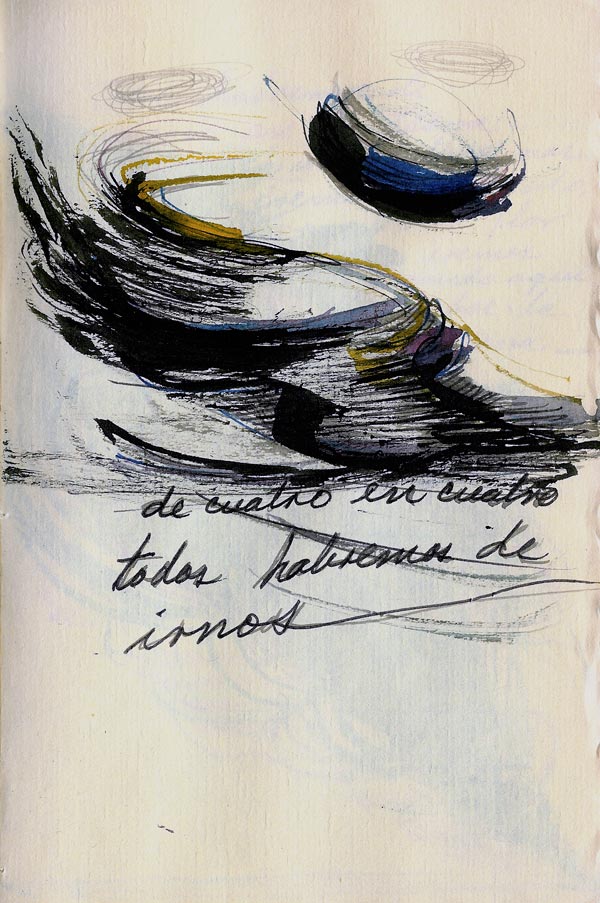 de cuatro en cuatro
todos habremos de
irnos